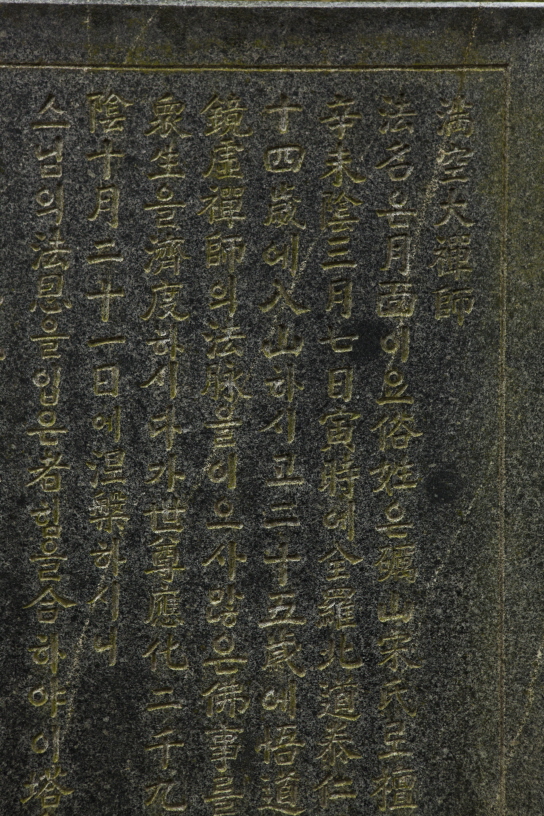 満空大禪師
法名은月面이요俗姓은礪山宋氏로檀
辛未陰三月七日寅時에全羅北道泰仁
十四歲에入山하시고三十五歲에悟道
鏡虛禪師의法脉을이으사많은佛事를
衆生을濟度하시다가世尊應化二千九
陰十月二十一日에涅槃하시니
스님의法恩을입은者힘을合하야이塔